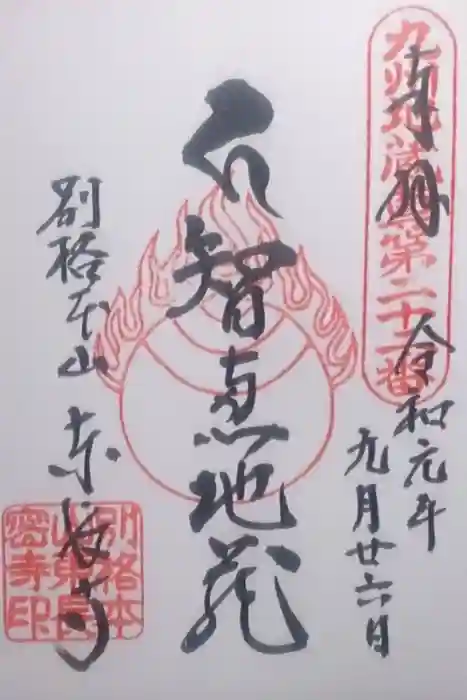 奉拝
九州地蔵尊第二十二番
令和元年
九月廿六日
智恵地蔵
別格本山 東長寺
別格本
山東長
密寺印